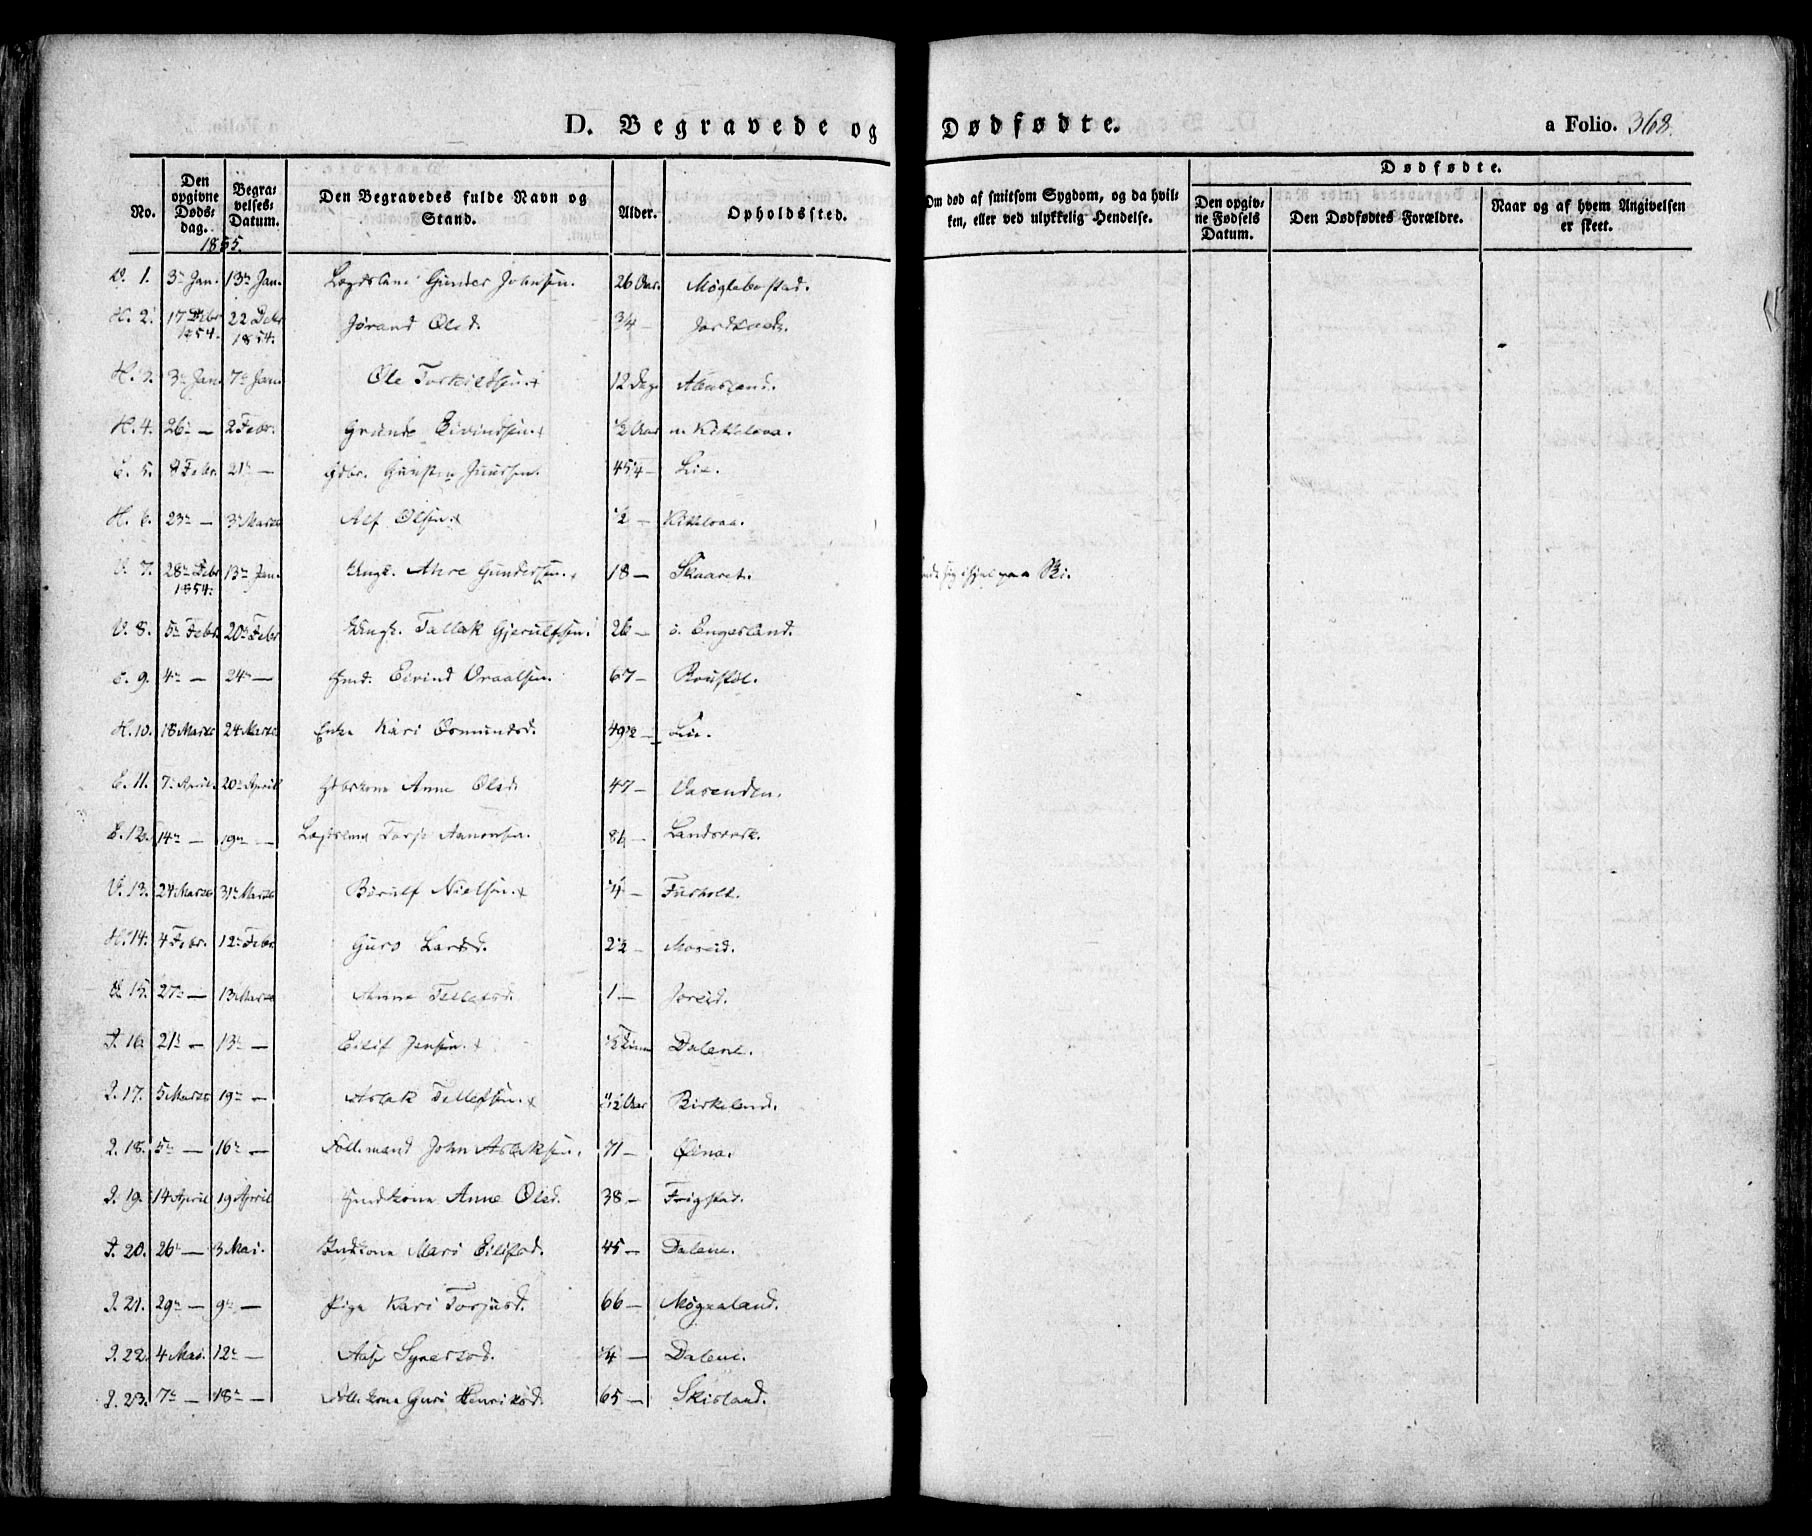 D. Begravede og Dødfødte. a Folio. 368.
No. Den opgivne Døds-dag. Begra-velses-Datum. Den Begravedes fulde Navn og Stand. Alder. Opholdssted. Om død af smitsom Sygdom, og da hvil-ken, eller ved ulykkelig Hendelse. Dødfødte. Den opgiv-ne Fødsels Datum. Den Dødfødtes Forældre. Naar og af hvem Angivelsen er skeet.
1855.
V. 1. 3die Jan. 13de Jan. Lægdslem Gunder Johnsen. 26 Aar. Møglebostad.
H. 2. 17 Debr 1854. 22 Debr 1854. Jørand Olsd. 3/4 —
H. 3. 3die Jan. 7de Jan. Ole Torkildsen. 12 Dage
H. 4. 26 — 2 Febr. Grunde Eivindsen. 1/2 Aar n. Kittelsaa.
E. 5. 8 Febr. 21 — Gdbr. Gunsten Juursen. 45 1/4 — Lie.
H. 6. 23 — 3 Marts Alf Olsen. 1/2 — Kittelsaa.
V. 7. 28 Debr 1854. 13 Jan. Ungk. Anre Gundersen. 18 — Skaaret. sig ihjel paa Ski.
V. 8. 5 Febr. 20 Febr Ungk. Tallak Gjerulfsen. 26 — ö. Engesland.
E. 9. 4 — 24 — Hmd. Eivind Oraalsen. 67 —
H. 10. 18 Marts 24 Marts Enke Kari Osmundsd. 49 1/2 — Lie.
E. 11. 7 April. 20 April Gdbrkone Anne Olsd. 47 — Vasenden.
E. 12. 14 — 19 — Lægdslem Torje Aanonsen. 86 — Landsvik.
V. 13. 24 Marts 31 Marts Børulf Nielsen. 1/4 — Furholt.
H. 14. 4 Febr. 12 Febr. Guro Larsd. 2 1/2 — Moseid.
15. 27 — 13 Marts Anne Tellefsd. 1 — Joreid.
I. 16. 21 — 13 — Eilif Jensen. 1/2 Time Dalene.
I. 17. 5 Marts 19 — Aslak Tellefsen. 1 1/2 Aar Birkeland.
I. 18. 5 — 16 — Follmand John Aslaksen. 71 — Øina.
I. 19. 14 April 19 April Hmdkone Anne Olsd. 38 — Frigstad.
I. 20. 26 — 3 Mai. Hmdkone Mari Eilifsd. 45 — Dalene.
I. 21. 29 — 9 — Pige Kari Torjusd. 66 — Møgealand.
I. 22. 4 Mai. 12 — Aase Synersd. 1/4 — Dalene.
I. 23. 7 — 18 — Follkone Guri Henriksd. 65 — Skisland.